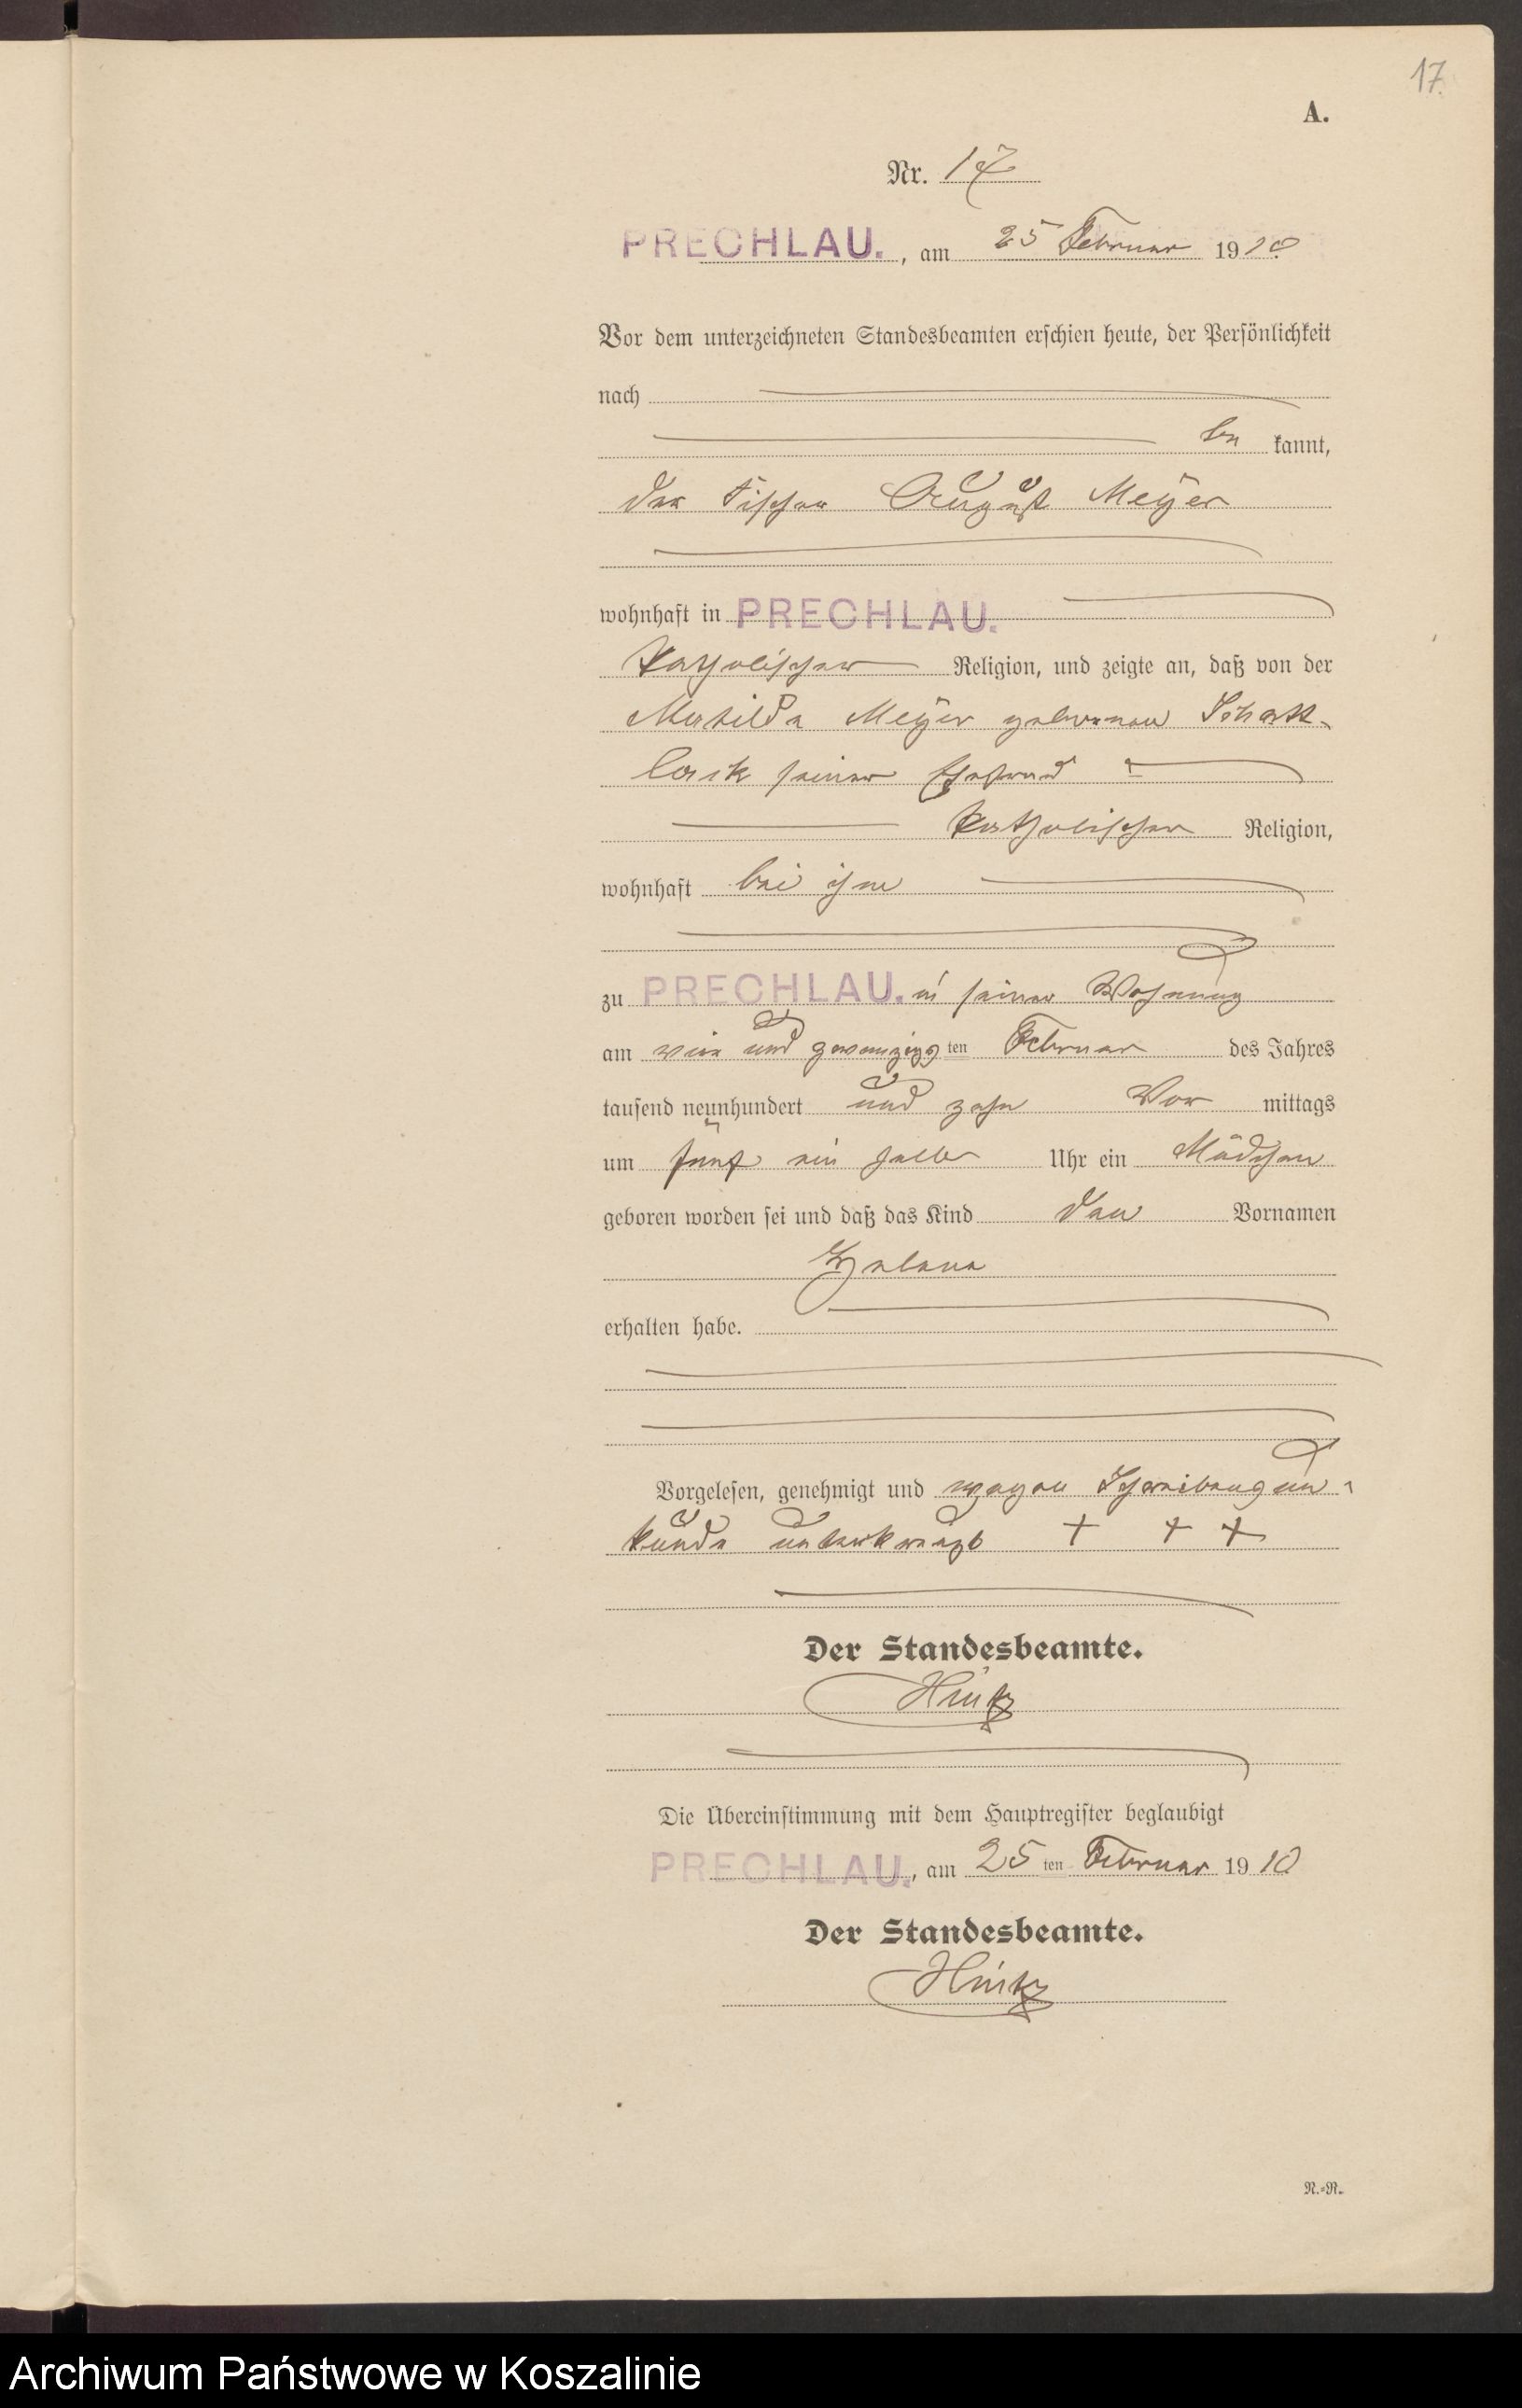 17.
A.
Nr. 17
PRECHLAU., am 25 Februar 1910.
Vor dem unterzeichneten Standesbeamten erschien heute, der Persönlichkeit
nach
be kannt,
der Fischer August Meyer
wohnhaft in PRECHLAU.
katholischer Religion, und zeigte an, daß von der
Matilde Meyer geborenen Schatt-
lack seiner Ehefrau
katholischer Religion,
wohnhaft bei ihm
zu PRECHLAU. in seiner Wohnung
am vier und zwanzigsten Februar des Jahres
tausend neunhundert und zehn Vor mittags
um fünf ein halb Uhr ein Mädchen
geboren worden sei und daß das Kind den Vornamen
Helene
erhalten habe.
Vorgelesen, genehmigt und wegen Schreibensun-
kunde unterkreuzt + + +
Der Standesbeamte.
Hintz
Die Übereinstimmung mit dem Hauptregister beglaubigt
PRECHLAU., am 25 ten Februar 1910
Der Standesbeamte.
Hintz
N.-R.
Archiwum Państwowe w Koszalinie